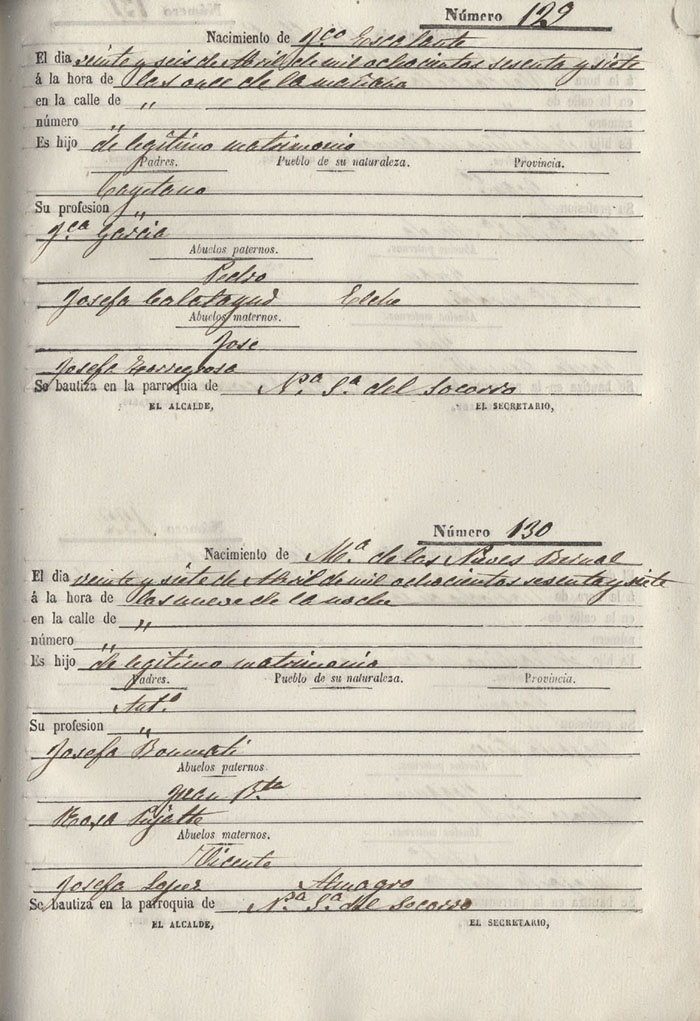 Número 129
Nacimiento de Fco Escalante
El dia veinte y seis de Abril de mil ochocientos sesenta y siete
á la hora de las once de la mañana
en la calle de "
número "
Es hijo de legítimo matrimonio
Padres. Pueblo de su naturaleza. Provincia.
Cayetano
Su profesion "
Fca Garcia
Abuelos paternos.
Pedro
Josefa Calatayud Elche
Abuelos maternos.
Jose
Josefa Torregrosa
Se bautiza en la parroquia de Na. Sa. del Socorro
EL ALCALDE, EL SECRETARIO,
Número 130
Nacimiento de Ma de las Nieves Bernal
El dia veinte y siete de Abril de mil ochocientos sesenta y siete
á la hora de las nueve de la noche
en la calle de "
número "
Es hijo de legitimo matrimonio
Padres. Pueblo de su naturaleza. Provincia.
Anto
Su profesion "
Josefa Boumati
Abuelos paternos
Juan Bta
Rosa Pujalte
Abuelos maternos.
Vicente
Josefa Lopez Almagro
Se bautiza en la parroquia de Na. Sa. del Socorro
EL ALCALDE, EL SECRETARIO,